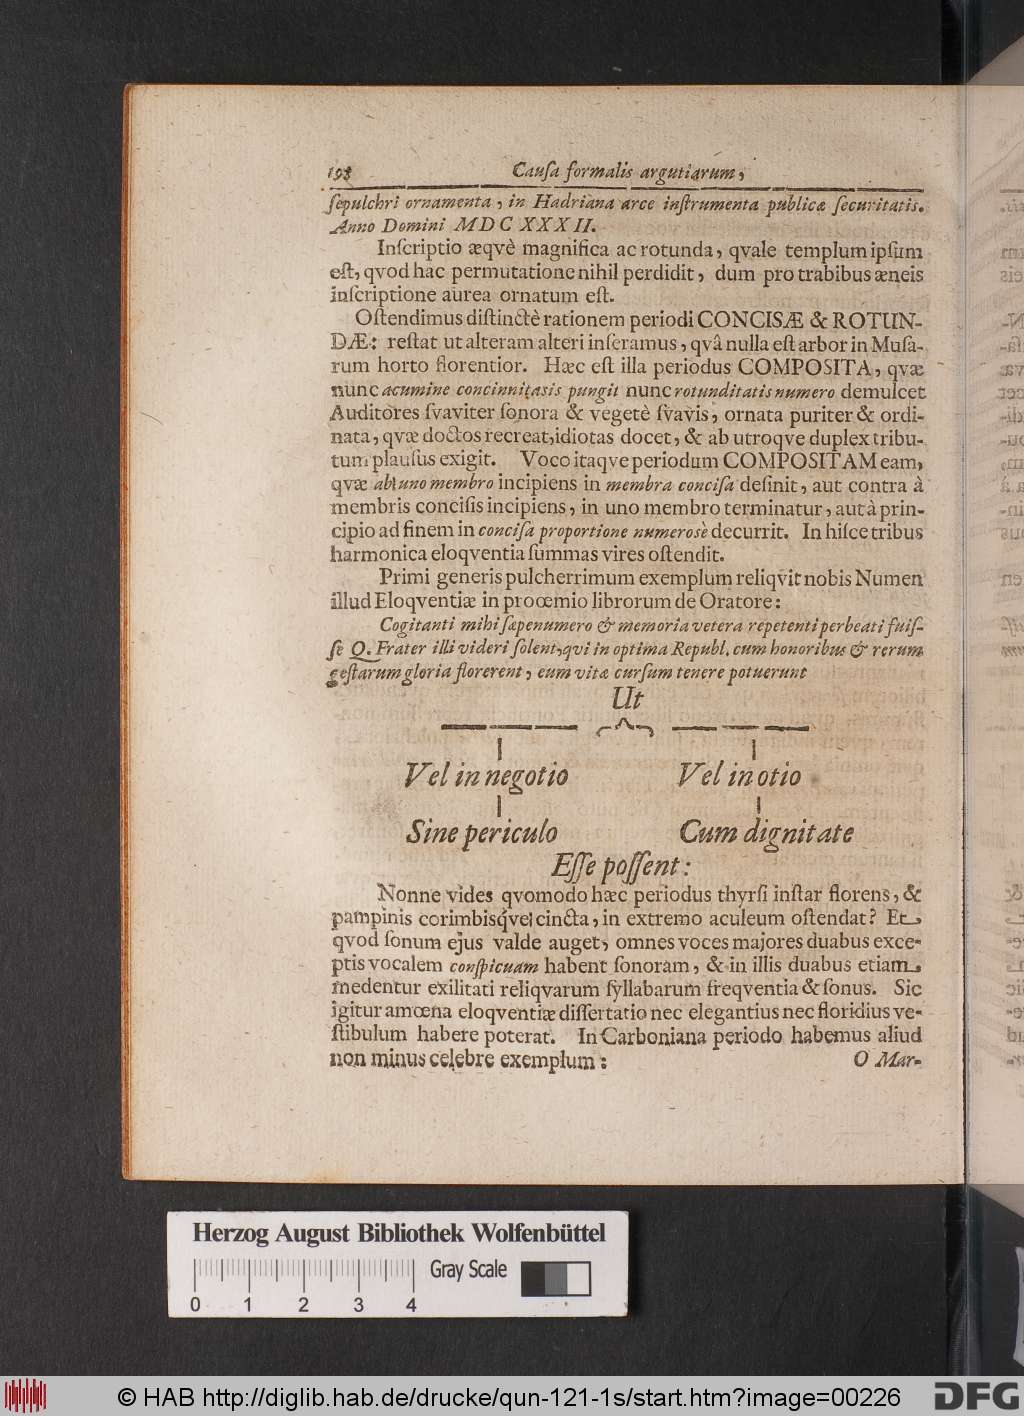 198 Cauſa formalis argutiarum,
ſepulchri ornamenta, in Hadriana arce inſtrumenta publicæ ſecuritatis.
Anno Domini MDC XXXII.
Inſcriptio æqvè magnifica ac rotunda, qvale templum ipſum
eſt, qvod hac permutatione nihil perdidit, dum pro trabibus æneis
inſcriptione aurea ornatum eſt.
Oſtendimus diſtinctè rationem periodi CONCISÆ & ROTUN-
DÆ: reſtat ut alteram alteri inſeramus, qvâ nulla eſt arbor in Muſa-
rum horto florentior. Hæc eſt illa periodus COMPOSITA, qvæ
nunc acumine concinnitatis pungit nunc rotunditatis numero demulcet
Auditores ſvaviter ſonora & vegetè ſvavis, ornata puriter & ordi-
nata, qvæ doctos recreat, idiotas docet, & ab utroqve duplex tribu-
tum plauſus exigit. Voco itaqve periodum COMPOSITAM eam,
qvæ ab uno membro incipiens in membra conciſa definit, aut contra à
membris conciſis incipiens, in uno membro terminatur, aut à prin-
cipio ad finem in conciſa proportione numerosè decurrit. In hiſce tribus
harmonica eloqventia ſummas vires oſtendit.
Primi generis pulcherrimum exemplum reliqvit nobis Numen
illud Eloqventiæ in proœmio librorum de Oratore:
Cogitanti mihi ſæpenumero & memoria vetera repetenti perbeati fuiſ-
ſe Q. Frater illi videri ſolent, qvi in optima Republ. cum honoribus & rerum
geſtarum gloria florerent, eum vitæ curſum tenere potuerunt
Ut
Vel in negotio Vel in otio
Sine periculo Cum dignitate
Eſſe poſſent:
Nonne vides qvomodo hæc periodus thyrſi inſtar florens, &
pampinis corimbisq́ve cincta, in extremo aculeum oſtendat? Et
qvod ſonum ejus valde auget, omnes voces majores duabus exce-
ptis vocalem conſpicuam habent ſonoram, & in illis duabus etiam
medentur exilitati reliqvarum ſyllabarum freqventia & ſonus. Sic
igitur amœna eloqventiæ diſſertatio nec elegantius nec floridius ve-
ſtibulum habere poterat. In Carboniana periodo habemus aliud
non minus celebre exemplum: O Mar-
Herzog August Bibliothek Wolfenbüttel
Gray Scale
0 1 2 3 4
© HAB http://diglib.hab.de/drucke/qun-121-1s/start.htm?image=00226
DFG